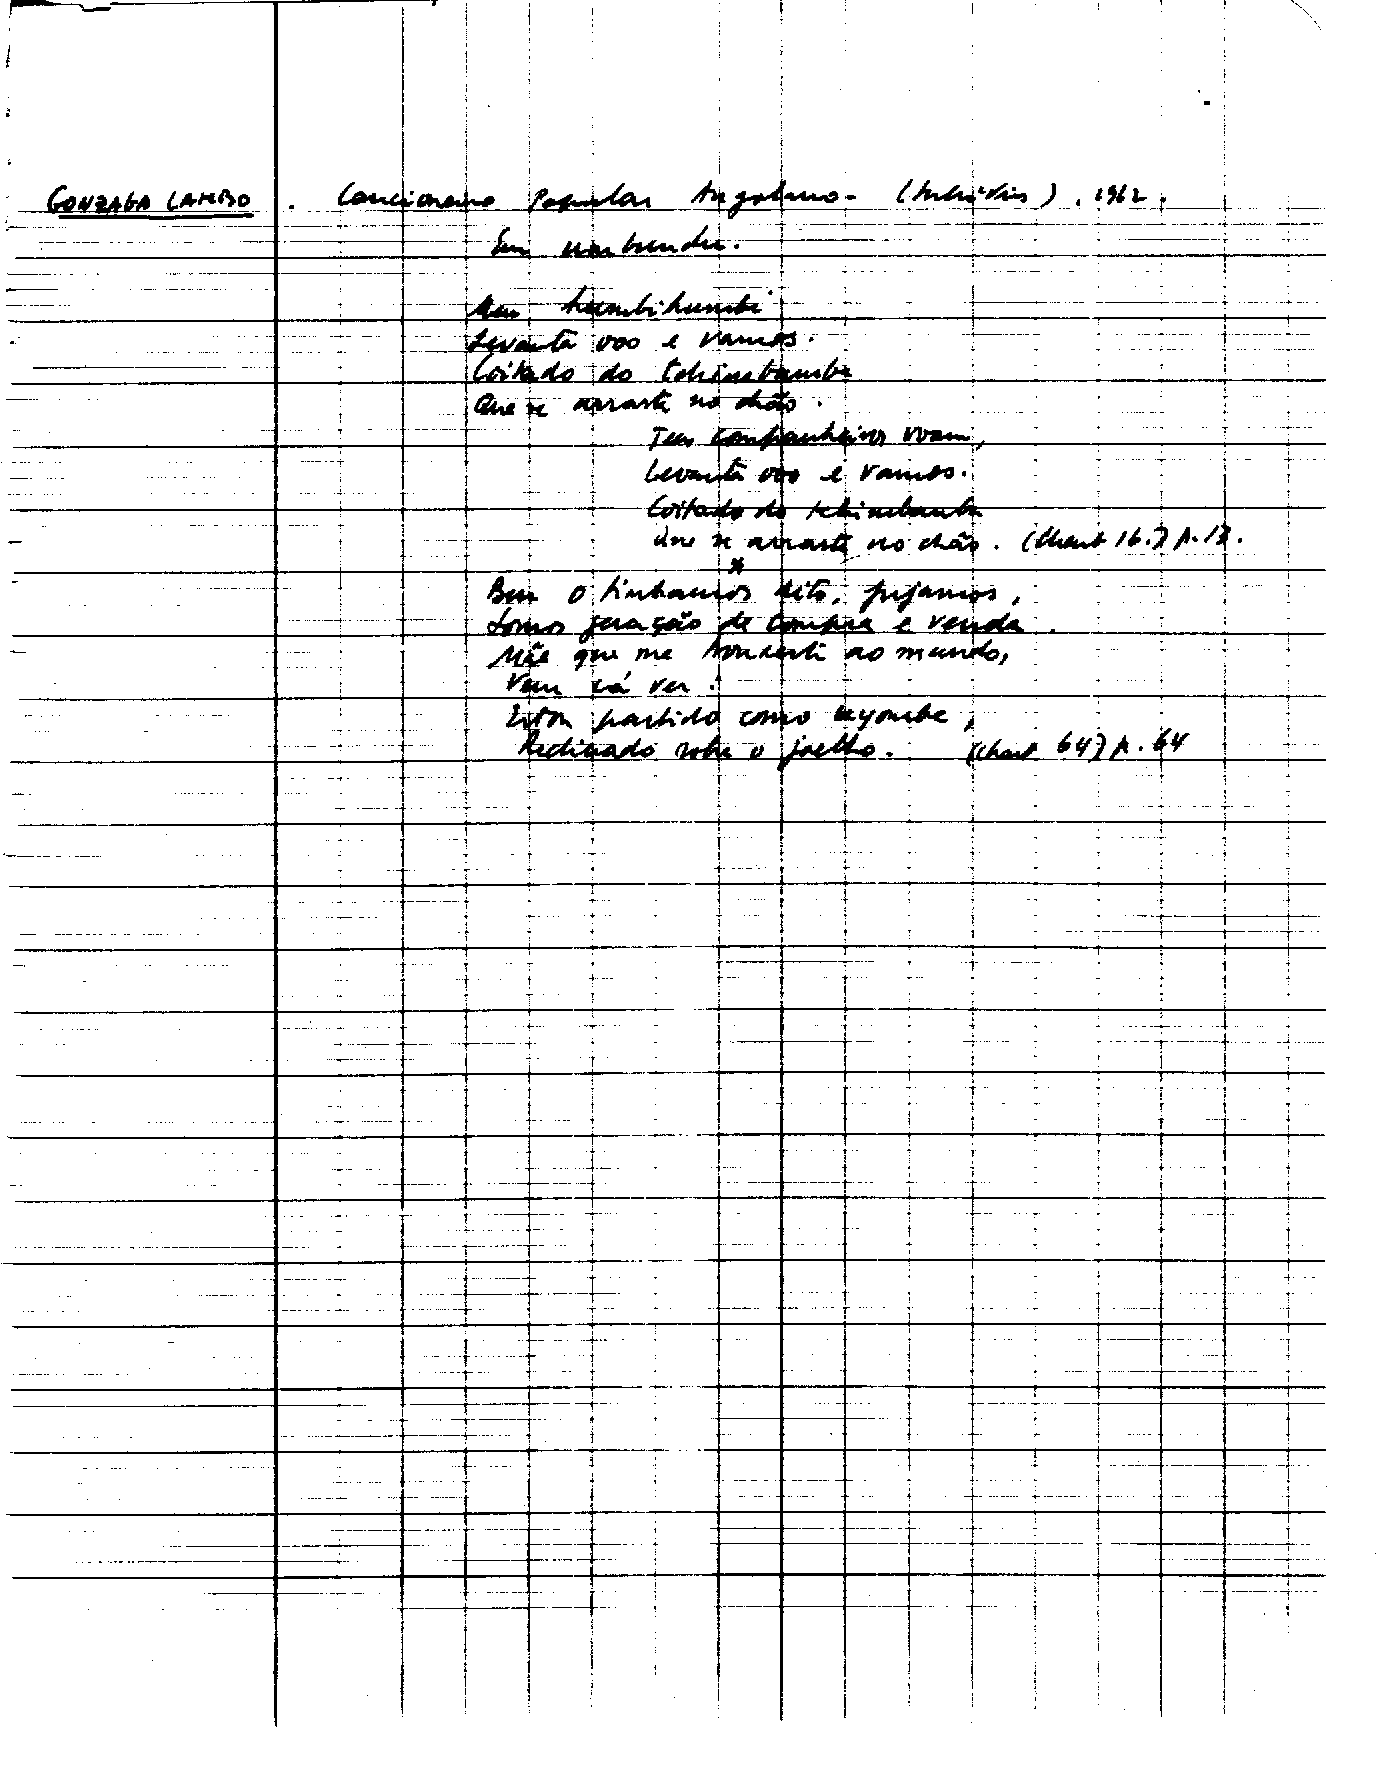 GONZAGA LAMBO. Cancioneiro Popular Angolano - (Subsídios). 1962.
Em umbundu.
Meu humbihumbi
Levanta voo e vamos.
Coitado do tchimbamba
Que se arrasta no chão.
Teus companheiros voam,
Levanta voo e vamos.
Coitado do tchimbamba
Que se arrasta no chão. (Chant 16.) p.
*
Bem o tinhamos dito, fujamos,
Somos geração de compra e venda.
Mãe que me trouxeste ao mundo,
Vem cá ver!
Estou partido como
sobre o joelho. (Chant 64) p. 64